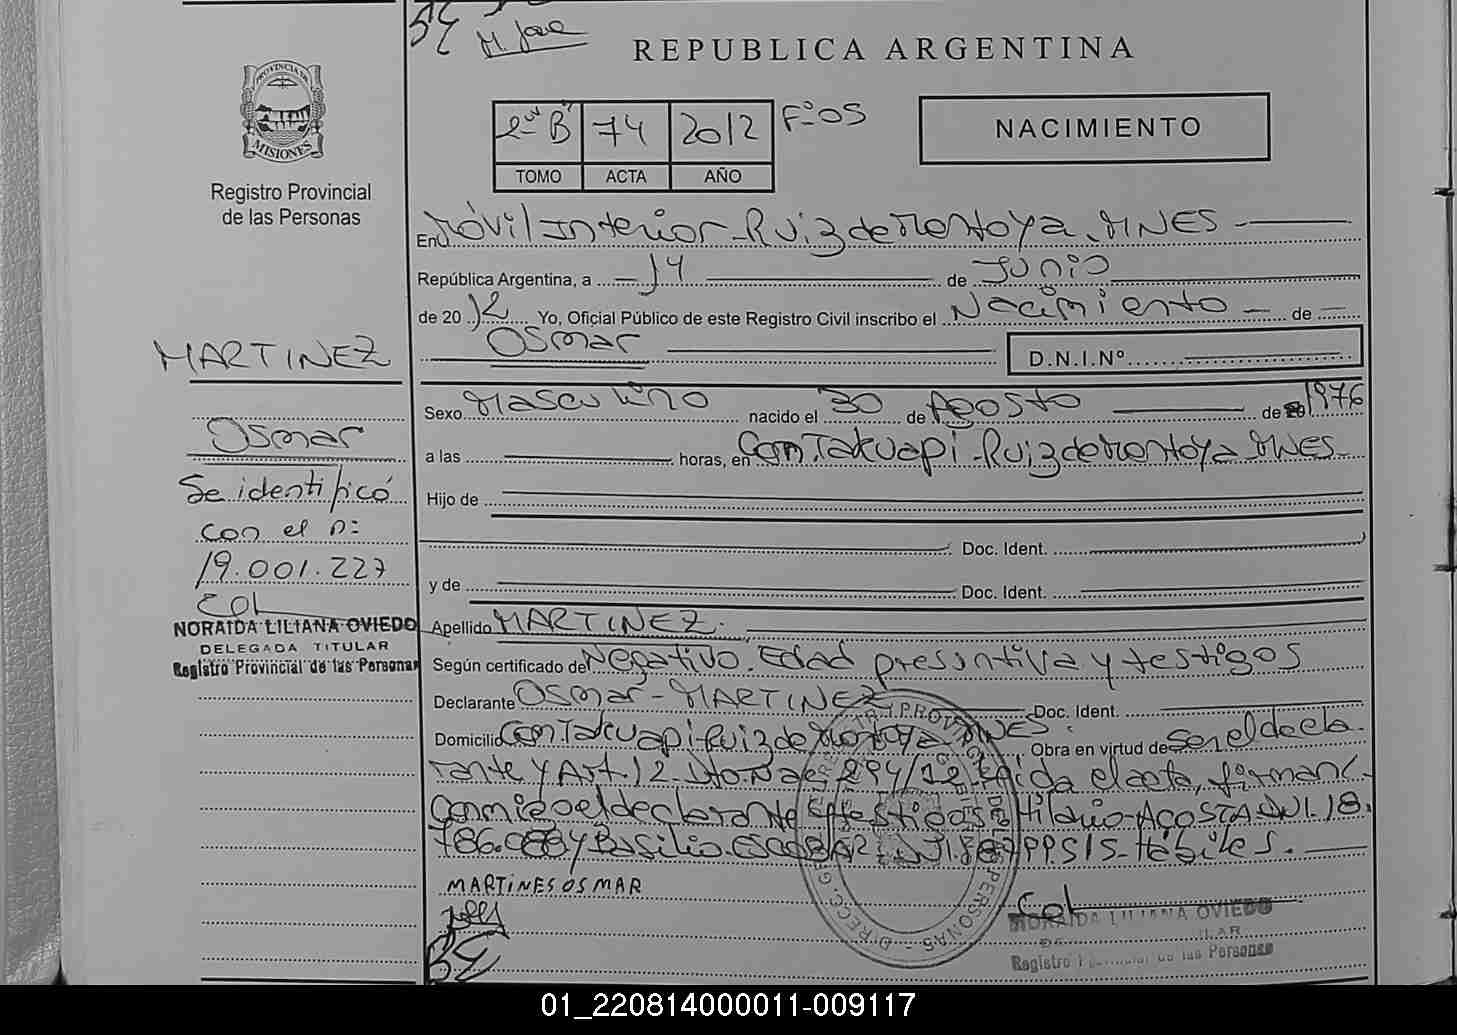 M. José
REPUBLICA ARGENTINA
PROVINCIA DE
MISIONES
"B" 74 2012 Fº 05
TOMO ACTA AÑO
NACIMIENTO
Registro Provincial
de las Personas
En Móvil Interior-Ruiz de Montoya, MNES
República Argentina, a 14 de Junio
de 2012 Yo, Oficial Público de este Registro Civil inscribo el Nacimiento de
Osmar D.N.I.Nº
MARTINEZ
Sexo Masculino nacido el 30 de Agosto de 1976
Osmar
a las horas, en Com. Takuapi-Ruiz de Montoya MNES
Se identificó
con el n:
19.001.227
Hijo de
Doc. Ident.
y de Doc. Ident.
NORAIDA LILIANA OVIEDO
DELEGADA TITULAR
Registro Provincial de las Personas
Apellido MARTINEZ
Según certificado de Negativo. Edad presuntiva y testigos
Declarante Osmar-MARTINEZ Doc. Ident.
Domicilio Com. Takuapi-Ruiz de Montoya-MNES. Obra en virtud de Ser el decla
rante y Art. 12 Dto. Nac. 294/12 Leida el acta, firman
conmigo el declarante testigos Hilario-ACOSTA DNI. 18.
786.088 y Basilio ESCOBAR Hábiles.
MARTINES OSMAR
NORAIDA LILIANA OVIEDO
Registro Provincial de las Personas
01_220814000011-009117